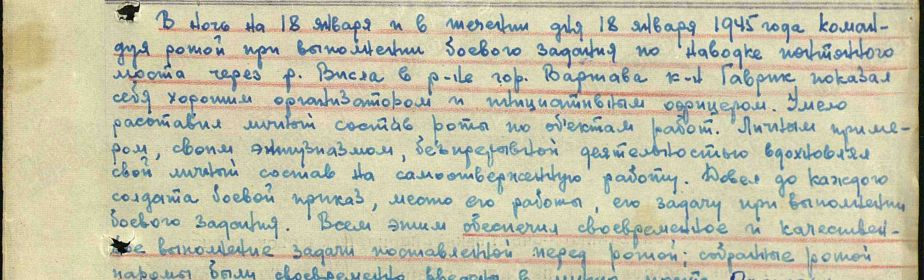 В ночь на 18 января и в течении дня 18 января 1945 года коман-
дуя ротой при выполнении боевого задания по наводке понтонного
моста через р. Висла в р-не гор. Варшава к-н Гаврик показал
себя хорошим организатором и инициативным офицером. Умело
расставил личный состав роты по об'ектам работ. Личным приме-
ром, своим энтузиазмом, безпрерывной деятельностью вдохновлял
свой личный состав на самоотверженную работу. Довел до каждого
солдата боевой приказ, место его работы, его задачу при выполнении
боевого задания. Всем этим обеспечил своевременное и качествен-
ное выполнение задачи поставленной перед ротой; собранные ротой
паромы были своевременно введены в линию моста.